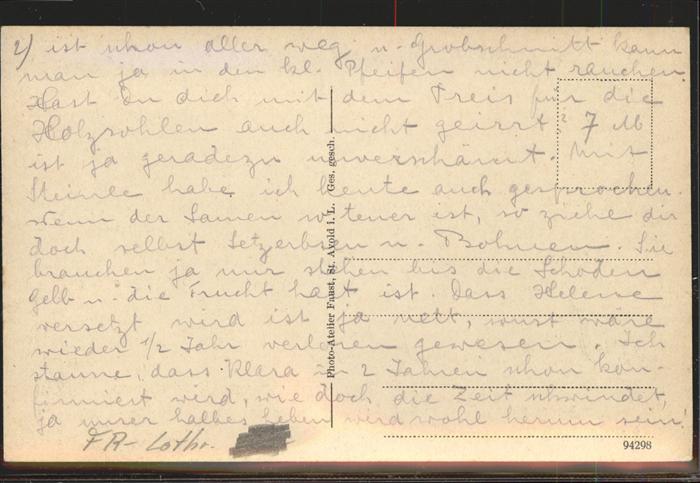 2) ist schon aller weg u. Grobschnitt kann
man ja in den kl. Pfeifen nicht rauchen.
Hast Du dich mit dem Preis für die
Holzsohlen auch nicht geirrt? 7 M
ist ja geradezu unverschämt. Mit
Steinle habe ich heute auch gesprochen.
Wenn der Samen so teuer ist, so ziehe dir
doch selbst Setzerbsen u. Bohnen. Sie
brauchen ja nur stehen bis die Schoden
gelb u. die Frucht hart ist. Dass Helene
versetzt wird ist ja nett, sonst wäre
wieder 1/2 Jahr verloren gewesen. Ich
staune, dass Klara in 2 Jahren schon kon-
firmiert wird, wie doch die Zeit schwindet,
ja unser halbes Leben wird wohl herum sein.
FR- Lothr.
Photo-Atelier Faust, St. Avold i. L. Ges. gesch.
94298